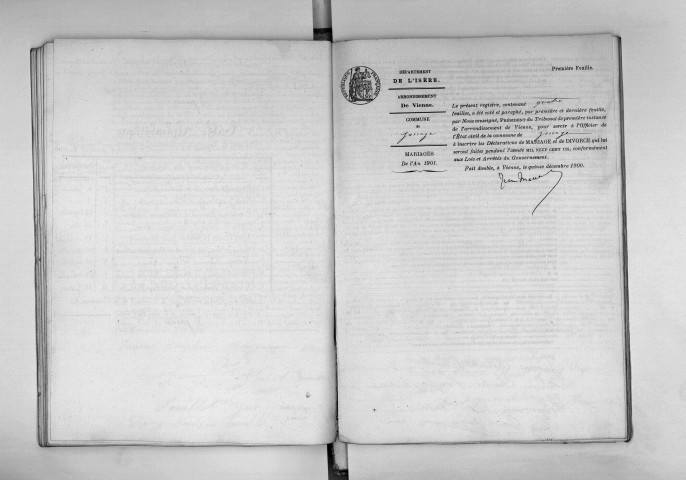 Première Feuille.
DÉPARTEMENT
DE L'ISÈRE.
ARRONDISSEMENT
De Vienne.
COMMUNE
de
MARIAGES
De l'An 1901.
Le présent registre, contenant quatre
feuilles, a été coté et paraphé, par première et dernière feuille,
par Nous soussigné, Président du Tribunal de première instance
de l'arrondissement de Vienne, pour servir à l'Officier de
l'État civil de la commune de
à inscrire les Déclarations de MARIAGE et de DIVORCE qui lui
seront faites pendant l'année MIL NEUF CENT UN, conformément
aux Lois et Arrêtés du Gouvernement.
Fait double, à Vienne, le quinze décembre 1900.